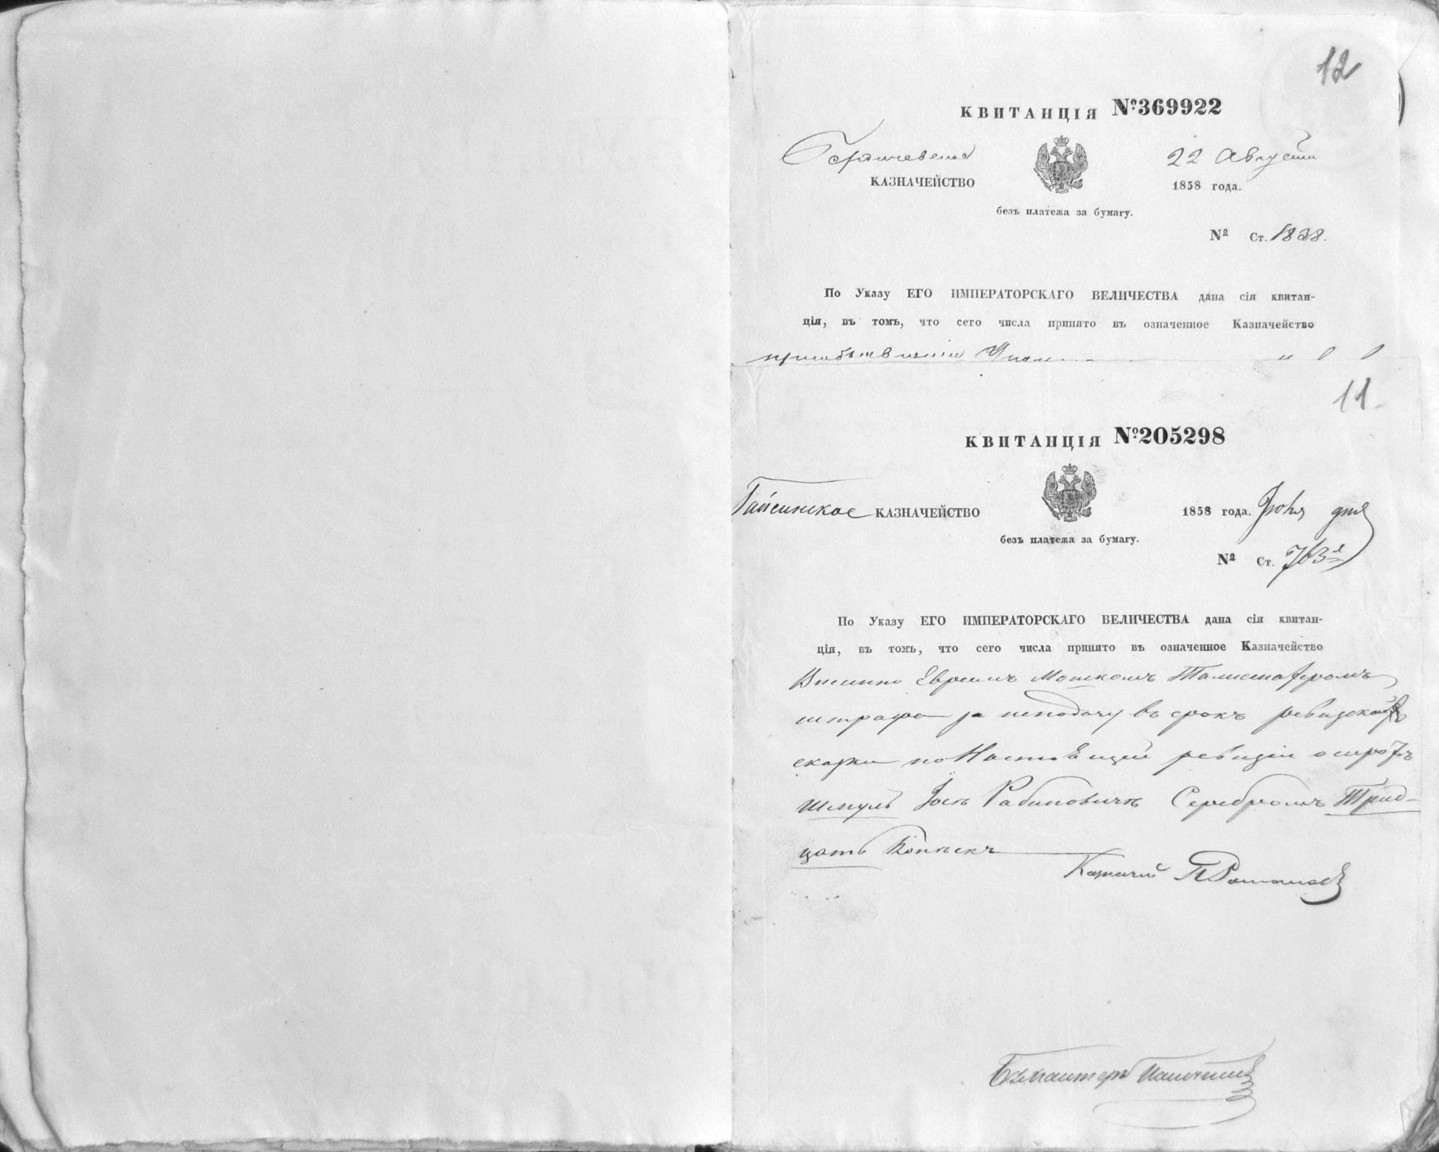 12
КВИТАНЦІЯ №369922
22 Августа
КАЗНАЧЕЙСТВО
1858 года.
безъ платежа за бумагу.
№ Ст.
По Указу ЕГО ИМПЕРАТОРСКАГО ВЕЛИЧЕСТВА дана сія квитан-
ція, въ томъ, что сего числа принято въ означенное Казначейство
11
КВИТАНЦІЯ №205298
Гайсинское КАЗНАЧЕЙСТВО
1858 года. дня
безъ платежа за бумагу.
№ Ст. 763
По Указу ЕГО ИМПЕРАТОРСКАГО ВЕЛИЧЕСТВА дана сія квитан-
ція, въ томъ, что сего числа принято въ означенное Казначейство
Евреемъ Мошкомъ
штрафа за неподачу въ срокъ ревизской
скаски по Настоящей ревизіи о
Шмуль Рабиновичъ Серебромъ Трид-
цать Копѣекъ
Казначей
Бухгалтеръ